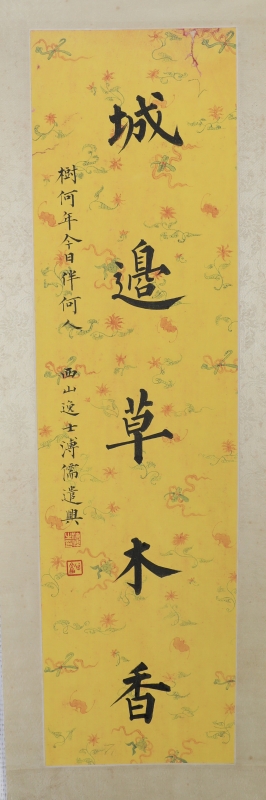 城邊草木香
樹何年今日伴何人 西山逸士溥儒遣興